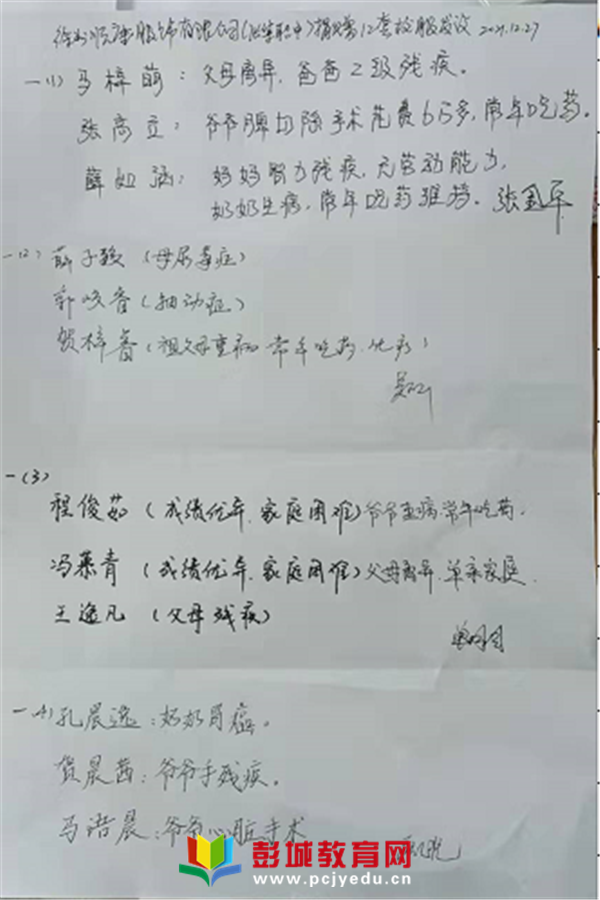 徐州顺康服饰有限公司(职中)捐助12套校服发放 2021.12.27
一(1) 马梓萌：父母离异，爸爸2级残疾。
张高立：爷爷脾切除手术花费6万多，常年吃药。
薛如涵：妈妈智力残疾，无劳动能力，
奶奶生病，常年吃药维持。张金平
一(2) 子 (母尿毒症)
郭咬音(抽动症)
贺梓香(祖父母重病 常年吃药
一(3)
程俊茹 (成绩优异、家庭困难)爷爷重病常年吃药.
冯燕青 (成绩优异、家庭困难)父母离异,单亲家庭.
王逸凡 (父母残疾)
一(4) 孔晨逸：奶奶胃癌。
贺晨茜：爷爷手残疾。
马浩晨：爷爷心脏手术
彭城教育网
www.pcjyedu.cn